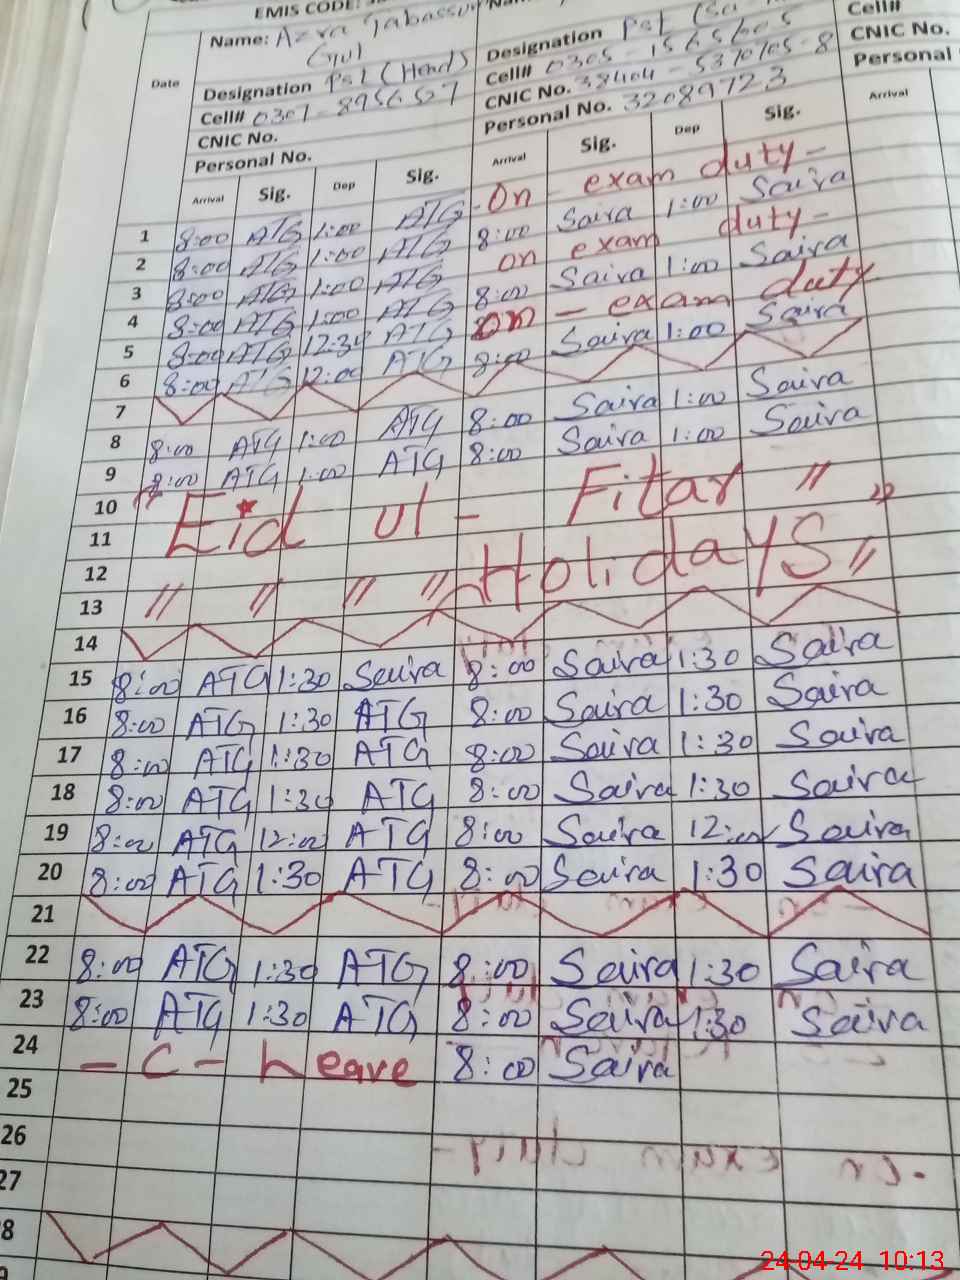 EMIS CODE:
Name: Azra Tabassum
Gul
Date
Designation Pst (Head)
Cell# 0307-8956527
CNIC No.
Personal No.
Designation Pst
Cell# 0305-1565605
CNIC No. 38404-5370105-8
Personal No. 32089723
Cell#
CNIC No.
Personal
Arrival Sig. Dep Sig. Arrival Sig. Dep Sig. Arrival
On exam duty-
1 8:00 ATG 1:00 ATG 8:00 Saira 1:00 Saira
2 8:00 ATG 1:00 ATG on exam duty-
3 8:00 ATG 1:00 ATG 8:00 Saira 1:00 Saira
4 8:00 ATG 1:00 ATG on - exam duty
5 8:00 ATG 12:30 ATG 8:00 Saira 1:00 Saira
6 8:00 ATG 12:00 ATG
7
8 8:00 ATG 1:00 ATG 8:00 Saira 1:00 Saira
9 8:00 ATG 1:00 ATG 8:00 Saira 1:00 Saira
10 Eid ul - Fitar "
11
12 " " " " Holidays "
13
14
15 8:00 ATG 1:30 Saira 8:00 Saira 1:30 Saira
16 8:00 ATG 1:30 ATG 8:00 Saira 1:30 Saira
17 8:00 ATG 1:30 ATG 8:00 Saira 1:30 Saira
18 8:00 ATG 1:30 ATG 8:00 Saira 1:30 Saira
19 8:00 ATG 12:00 ATG 8:00 Saira 12:00 Saira
20 8:00 ATG 1:30 ATG 8:00 Saira 1:30 Saira
21
22 8:00 ATG 1:30 ATG 8:00 Saira 1:30 Saira
23 8:00 ATG 1:30 ATG 8:00 Saira 1:30 Saira
24 - C - Leave 8:00 Saira
25
26
27
8
24-04-24 10:13